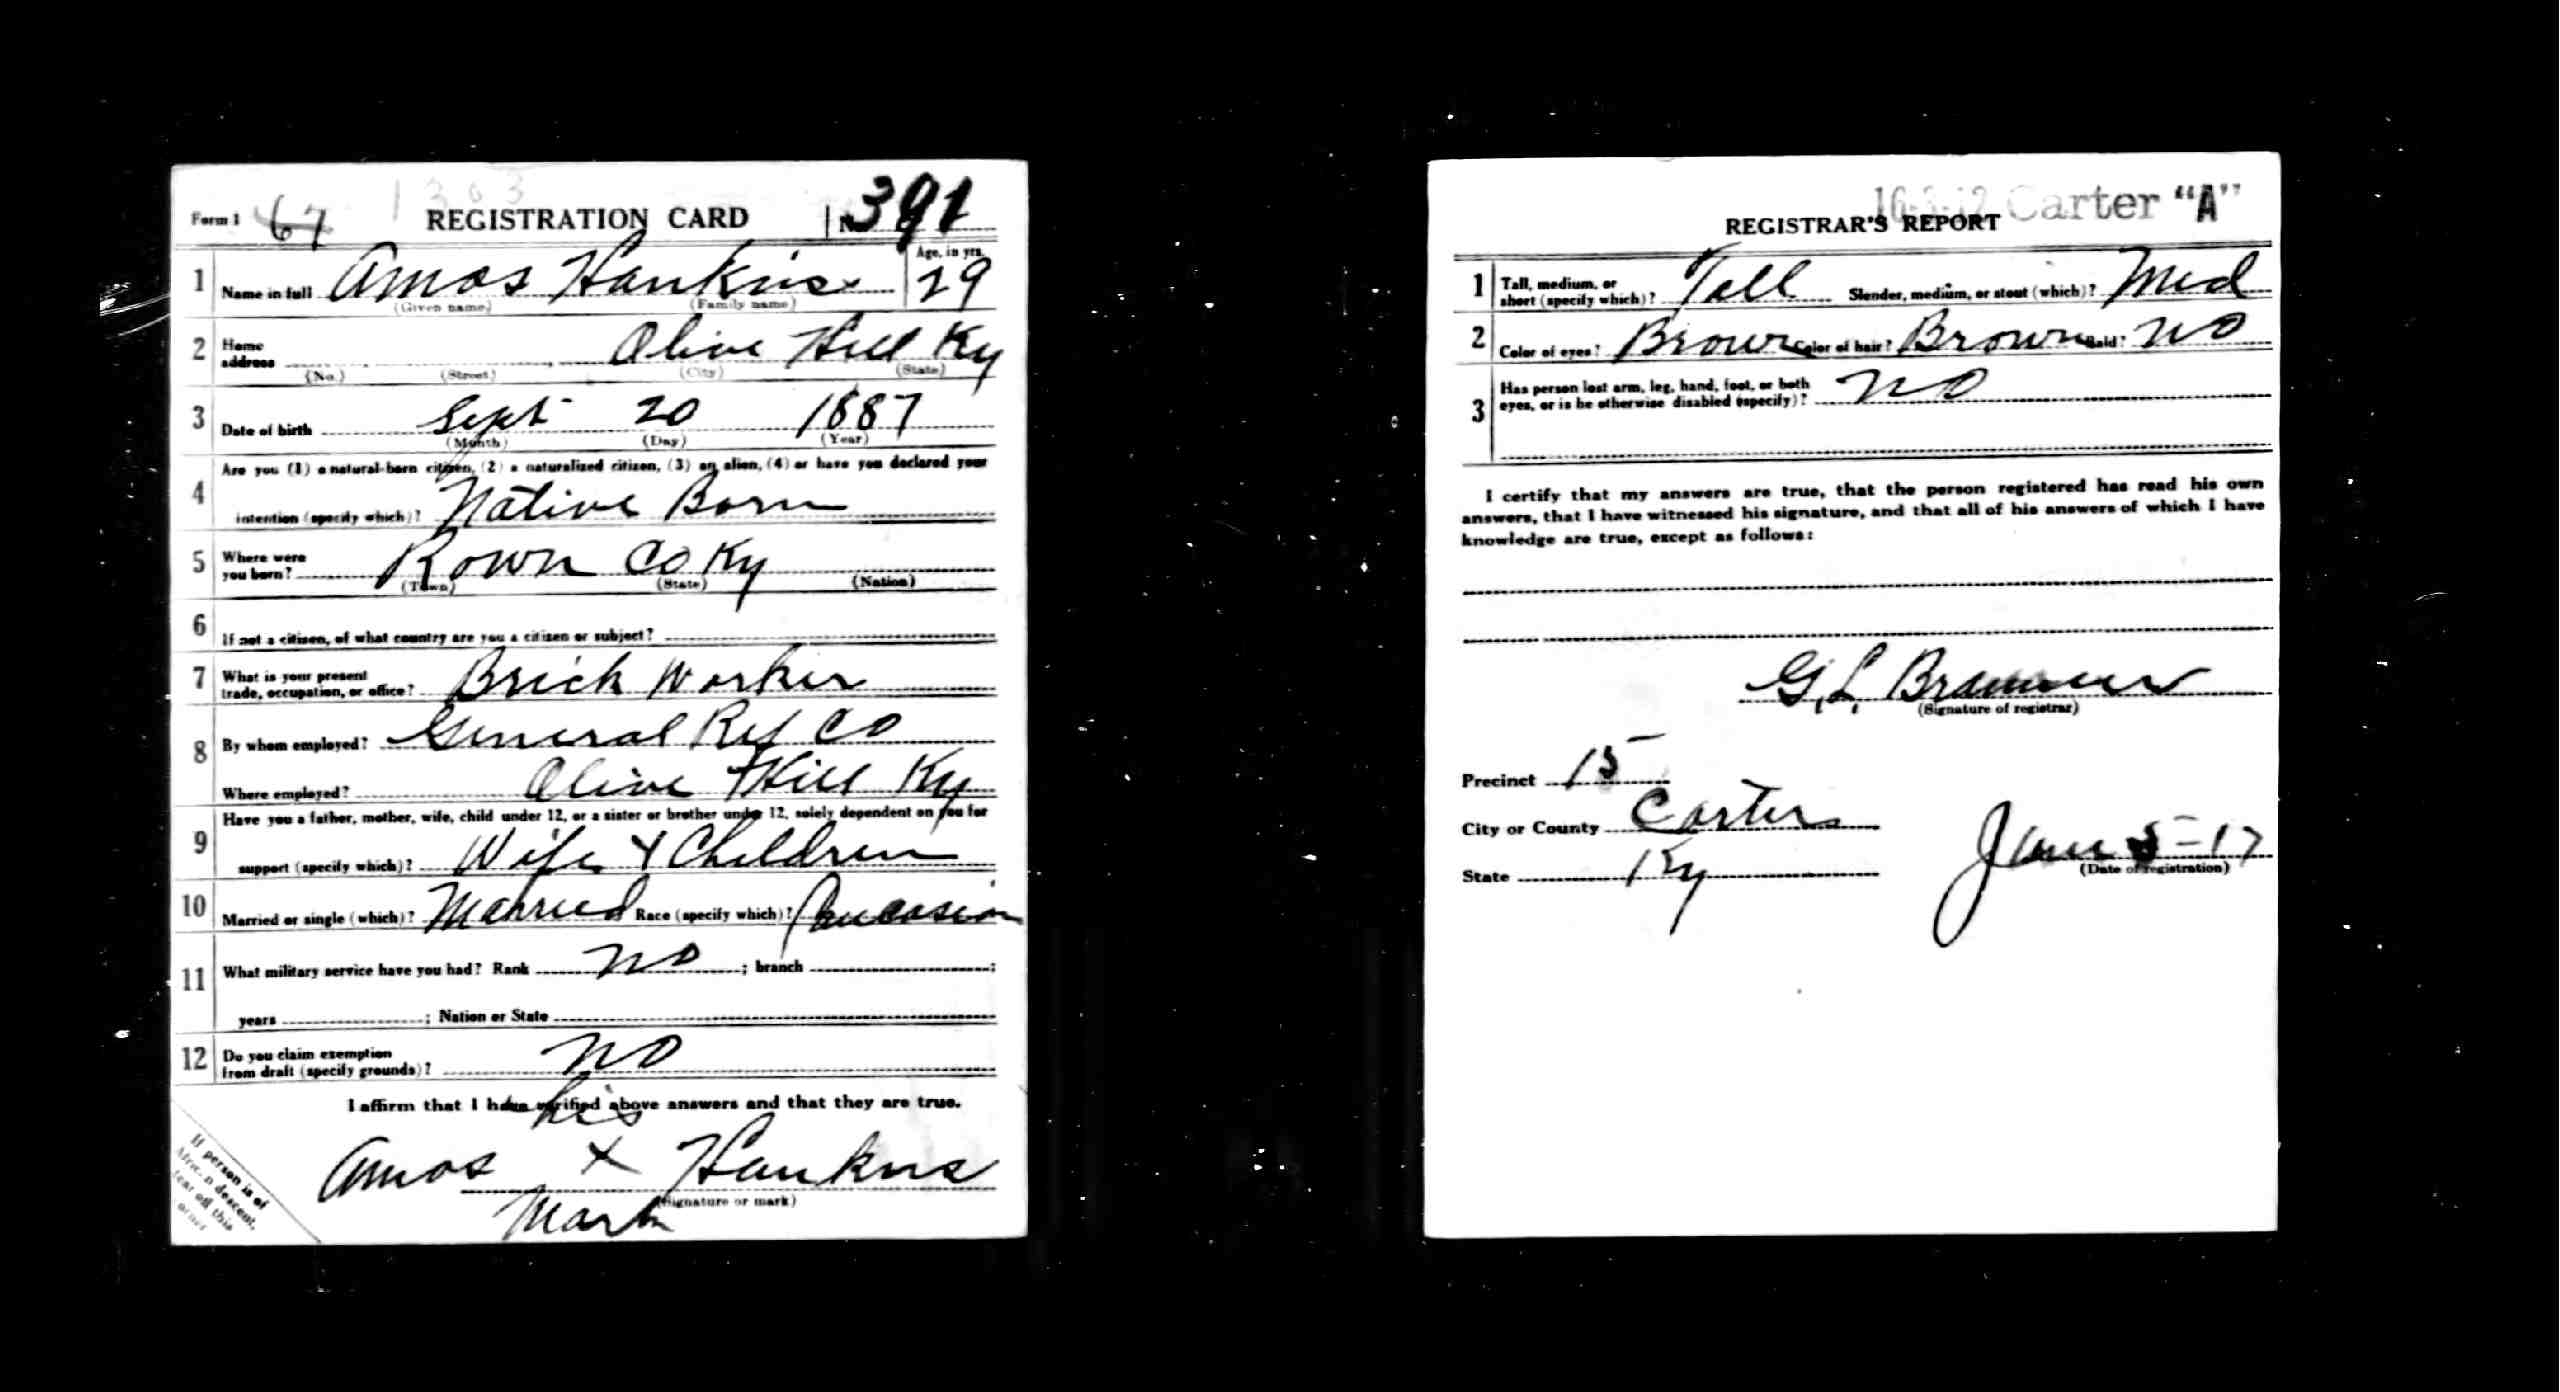 Form 1 67 1303 REGISTRATION CARD No. 391
1 Name in full Amos Hankins Age, in yrs. 29
(Given name) (Family name)
2 Home address Olive Hill Ky
(No.) (Street) (City) (State)
3 Date of birth Sept 20 1887
(Month) (Day) (Year)
4 Are you (1) a natural-born citizen, (2) a naturalized citizen, (3) an alien, (4) or have you declared your
intention (specify which)? Native Born
5 Where were you born? Rown Co Ky
(Town) (State) (Nation)
6 If not a citizen, of what country are you a citizen or subject?
7 What is your present trade, occupation, or office? Brick Worker
8 By whom employed? General Ref Co
Where employed? Olive Hill Ky
9 Have you a father, mother, wife, child under 12, or a sister or brother under 12, solely dependent on you for
support (specify which)? Wife & Children
10 Married or single (which)? Married Race (specify which)? Caucasion
11 What military service have you had? Rank no ; branch ;
years ; Nation or State
12 Do you claim exemption from draft (specify grounds)? no
I affirm that I have verified above answers and that they are true.
his
Amos X Hankins
(Signature or mark)
Mark
If person is of
African descent,
tear off this
corner
Carter "A"
REGISTRAR'S REPORT
1 Tall, medium, or short (specify which)? Tall Slender, medium, or stout (which)? Med
2 Color of eyes? Brown Color of hair? Brown Bald? no
3 Has person lost arm, leg, hand, foot, or both
eyes, or is he otherwise disabled (specify)? no
I certify that my answers are true, that the person registered has read his own
answers, that I have witnessed his signature, and that all of his answers of which I have
knowledge are true, except as follows:
G. L.
(Signature of registrar)
Precinct 15
City or County Carter
State Ky
June 5-17
(Date of registration)